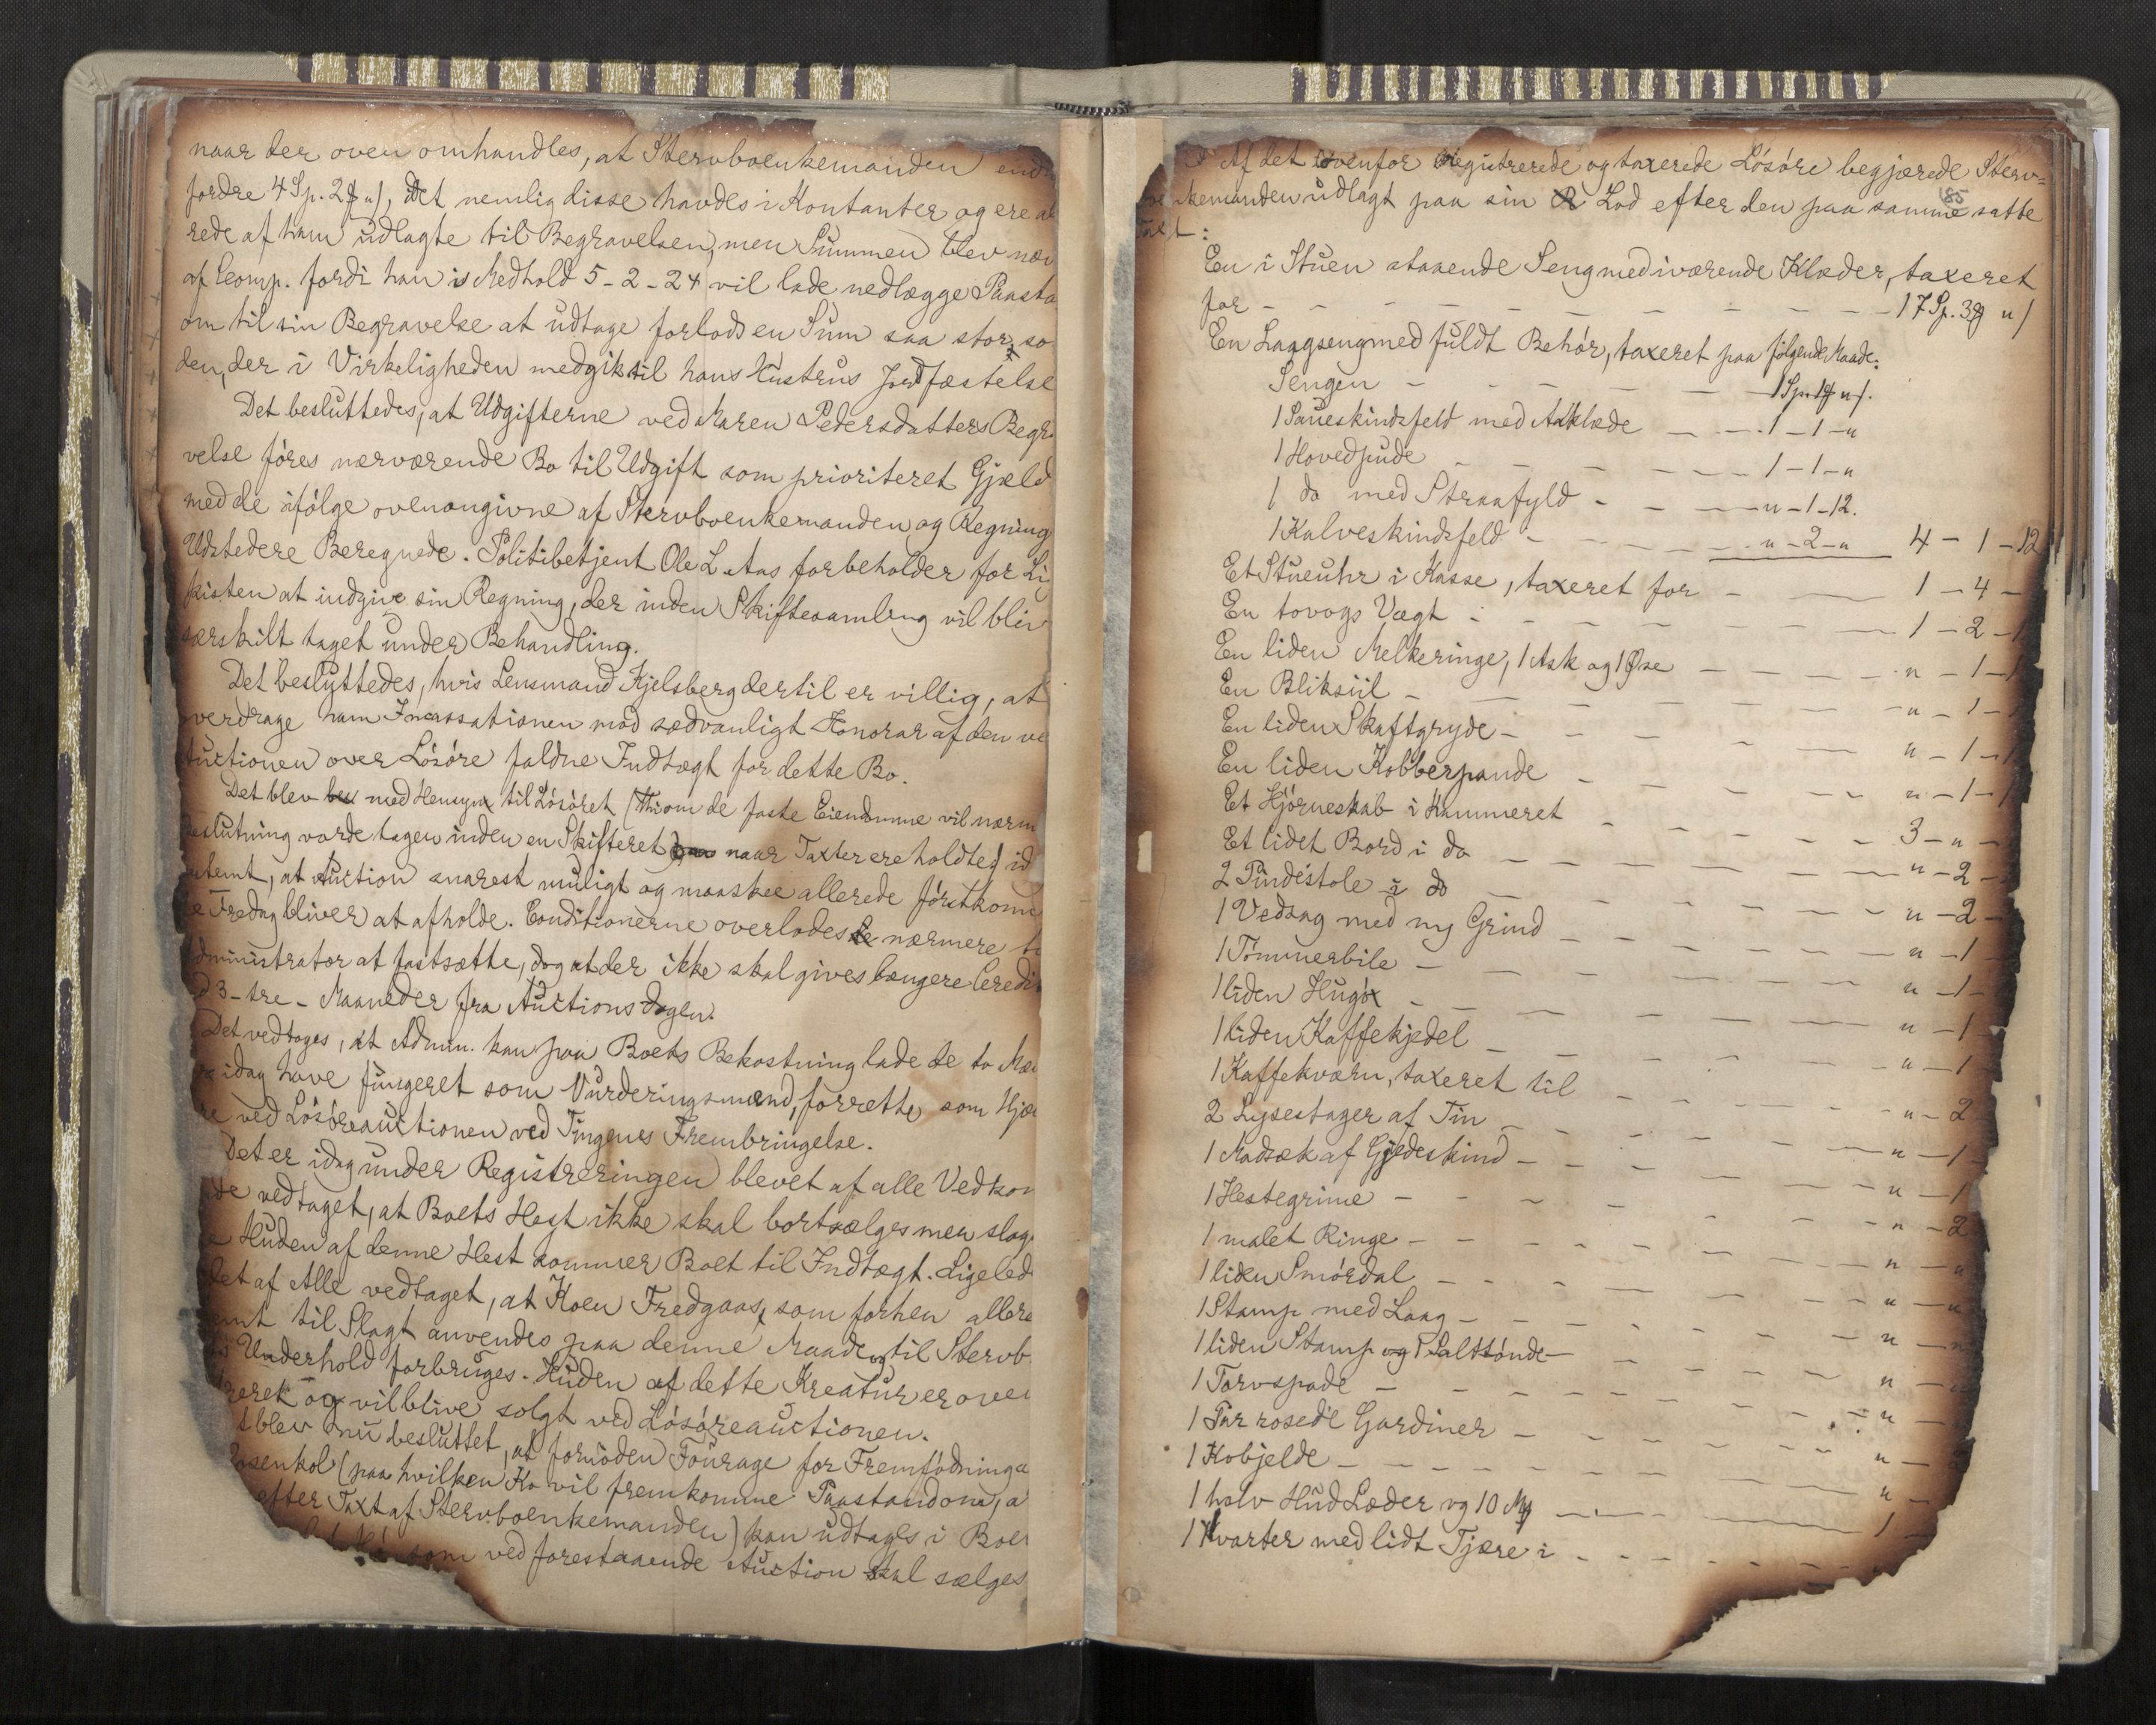 naar der oven omhandles, at Stervboenkemanden end
fordre 4 Sp. 2 u), det nemlig disse havdes i Kontanter og ere al
rede af ham udlagte til Begravelsen, men Summen blev næv
af Comp. fordi han i Medhold 5-2-24 vil lade nedlægge Paasta
om til sin Begravelse at udtage forlods en Sum saa stor, so
den, der i Virkeligheden medgik til hans Hustrus Jordfæstelse
Det besluttedes, at Udgifterne ved Maren Pedersdatters Begra
velse føres nærværende Bo til Udgift som prioriteret Gjæld
med de ifølge ovenangivne af Stervboenkemanden og Regning
Udstedere Beregnede. Politibetjent Ole L. Aas forbeholder for Li
kisten at indgive sin Regning, der inden Skiftesamling vil bliv
særskilt taget under Behandling.
Det besluttedes, hvis Lensmand Kjelsberg dertil er villig, at
overdrage ham Incassationen mod sædvanligt Honorar af den ve
Auctionen over Løsøre faldne Indtægt for dette Bo.
Det blev med Hensyn til Løsøret (thi om de faste Eiendomme vil nærm
Beslutning vorde tagen inden en Skifteret naar Taxter ere holdte) id
stemt, at Auction snarest muligt og maaskee allerede førstkom
e Fredag bliver at afholde. Conditionerne overlodes nærmere ti
Administrator at fastsætte, dog at der ikke skal gives længere Credit
d 3 - tre - Maaneder fra Auctionsdagen.
Det vedtoges, at Admin. kan paa Boets Bekostning lade de to Mæ
idag have fungeret som Vurderingsmænd, forrette som Hjæ
re ved Løsøreauctionen ved Tingenes Frembringelse.
Det er idag under Registreringen blevet af alle Vedkom
de vedtaget, at Boets Hest ikke skal bortsælges men slag
e Huden af denne Hest kommer Boet til Indtægt. Ligeled
let af Alle vedtaget, at Koen Fredgaas, som forhen allere
emt til Slagt anvendes paa denne Maade og til Stervb
s Underhold forbruges. Huden af dette Kreatur er oven
rerek og vil blive solgt ved Løsøreauctionen.
t blev nu besluttet, at fornøden Fourage for Fremfødning a
Rosenkol (paa hvilken Ko vil fremkomme Paastand om, a
efter Taxt af Stervboenkemanden) kan udtages i Boe
som ved forestaaende Auction skal sælges
185
Af det ovenfor registrerede og taxerede Løsøre begjærede Sterv=
boenkemanden udlagt paa sin Lod efter den paa samme satte
Taxt:
En i Stuen staaende Seng med iværende Klæder, taxeret
for - - - - - - - 17 Sp. 3 u)
En Laagseng med fuldt Behør, taxeret paa følgende Maade:
Sengen - - - - - 1 Sp. 1 u).
1 Saueskindsfeld med Aaklæde - - 1 - 1 - u
1 Hovedpude - - - - 1 - 1 - u
1 do med Straafyld - - - u - 1 - 12.
1 Kalveskindsfeld - - - - u - 2 - u 4 - 1 - 12
Et Stueuhr i Kasse, taxeret for - - 1 - 4 -
En tovogs Vægt - - - - - 1 - 2 - 1
En liden Melkeringe, 1 Ask og 1 Øse - - - u - 1 - 1
En Bliksiil - - - - - u - 1 - 1
En liden Skaftgryde - - - - - u - 1 - 1
En liden Kobberpande - - - - u - 1 - 1
Et Hjørneskab i Kammeret - - - - 3 - u -
Et lidet Bord i do - - - - u - 2 -
2 Pindestole i do - - - - u - 2 -
1 Vedsag med ny Grind - - - - u - 1
1 Tømmerbile - - - - - u - 1 -
1 liden Hugøx - - - - - u - 1 -
1 liden Kaffekjedel - - - - - u - 1
1 Kaffekværn, taxeret til - - - - u - 2
2 Lysestager af Tin - - - - - u - 1 -
1 Madsæk af Gjedeskind - - - - u - 1
1 Hestegrime - - - - - u - 2
1 malet Ringe - - - - - u - u
1 liden Smørdal - - - - - u - u
1 Stamp med Laag - - - - - u - u
1 liden Stamp og 1 Salttønde - - - - u - u
1 Torvspade - - - - - u -
1 Par rosede Gardiner - - - - u -
1 Kobjelde - - - - - u -
1 halv Hud Læder og 10 Mg - - - 1 -
1 Kvarter med lidt Tjære i - - - - -